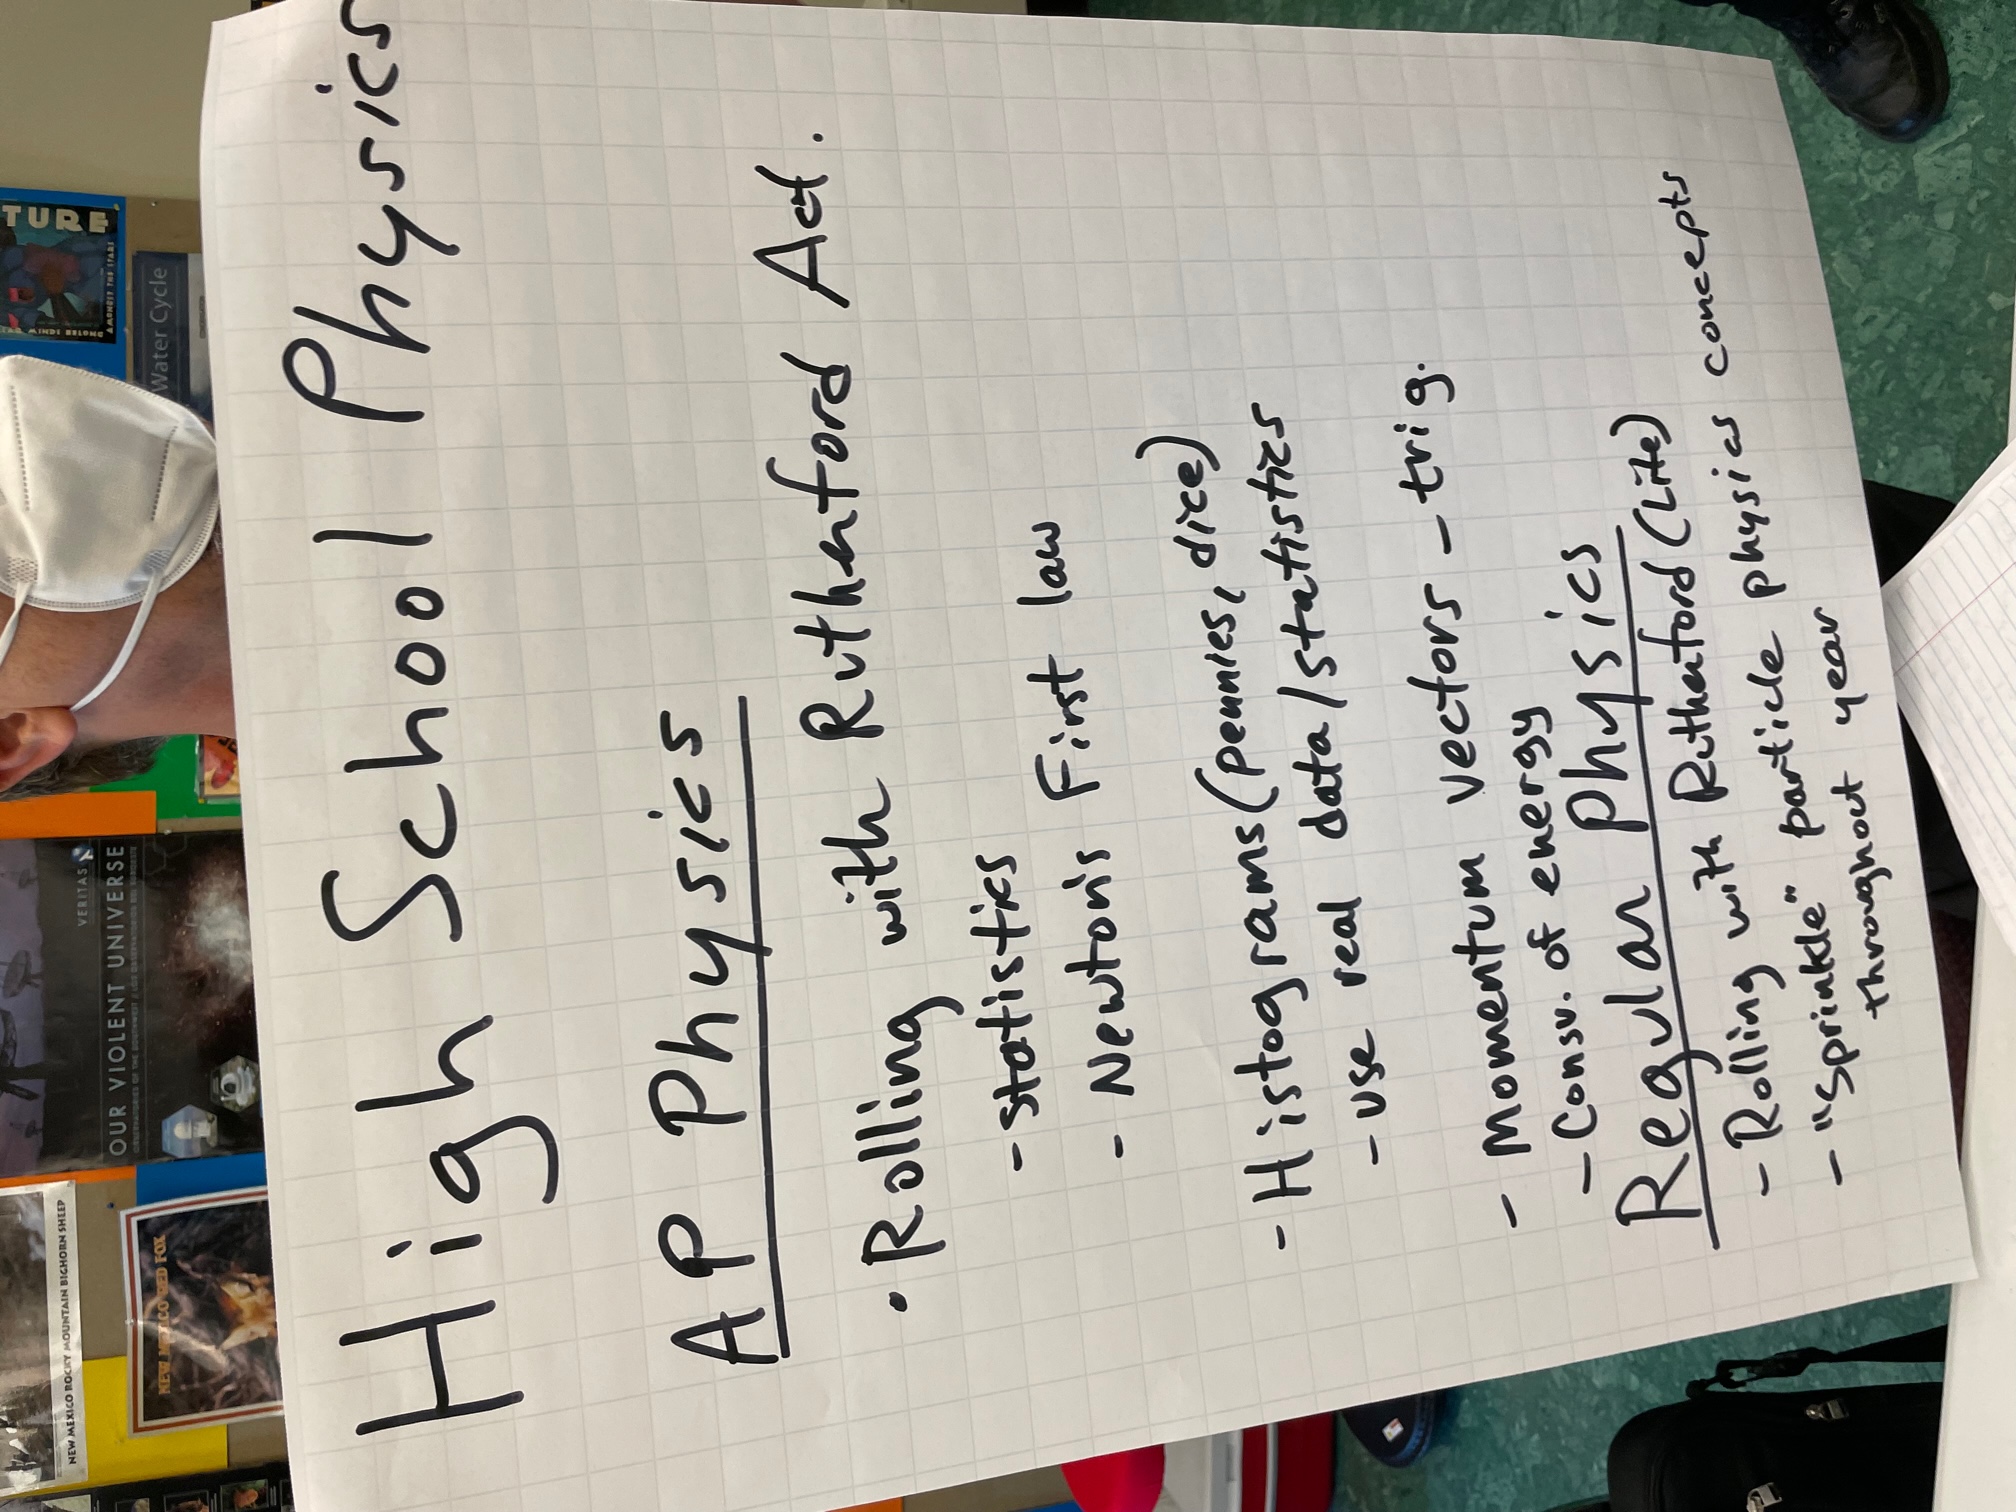 High School Physics
AP Physics
• Rolling with Rutherford Act.
- statistics
- Newton's First law
- Histograms (pennies, dice)
- use real data/statistics
- Momentum vectors - trig.
- Consv. of energy
Regular Physics
- Rolling with Rutherford (Lite)
- "Sprinkle" particle physics concepts
throughout year
TURE
AMONGST THE STARS
MINDS BELONG
Water Cycle
VERITAS
OUR VIOLENT UNIVERSE
NEW MEXICO RED FOX
NEW MEXICO ROCKY MOUNTAIN BIGHORN SHEEP